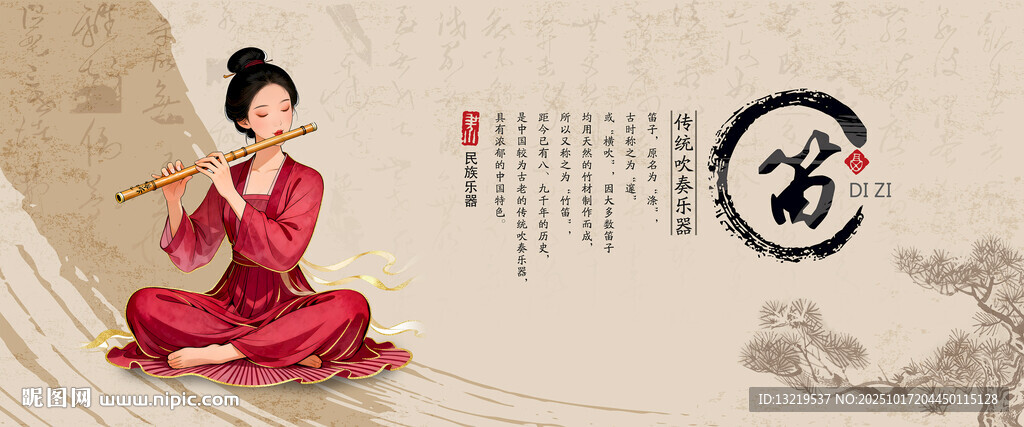 笛
DI ZI
传统吹奏乐器
笛子，原名为“涤”，
古时称之为“篴”
或“横吹”，因大多数笛子
均用天然的竹材制作而成，
所以又称之为“竹笛”，
距今已有八、九千年的历史，
是中国较为古老的传统吹奏乐器，
具有浓郁的中国特色。
民族乐器
昵图网 www.nipic.com
ID:13219537 NO:20251017204450115128